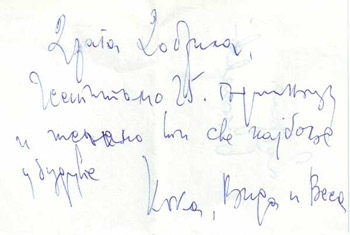 Драга Добрила,
Честитамо 25. годишњицу
и желимо вам све најбоље
у будуће
Кока, Вида и Веса